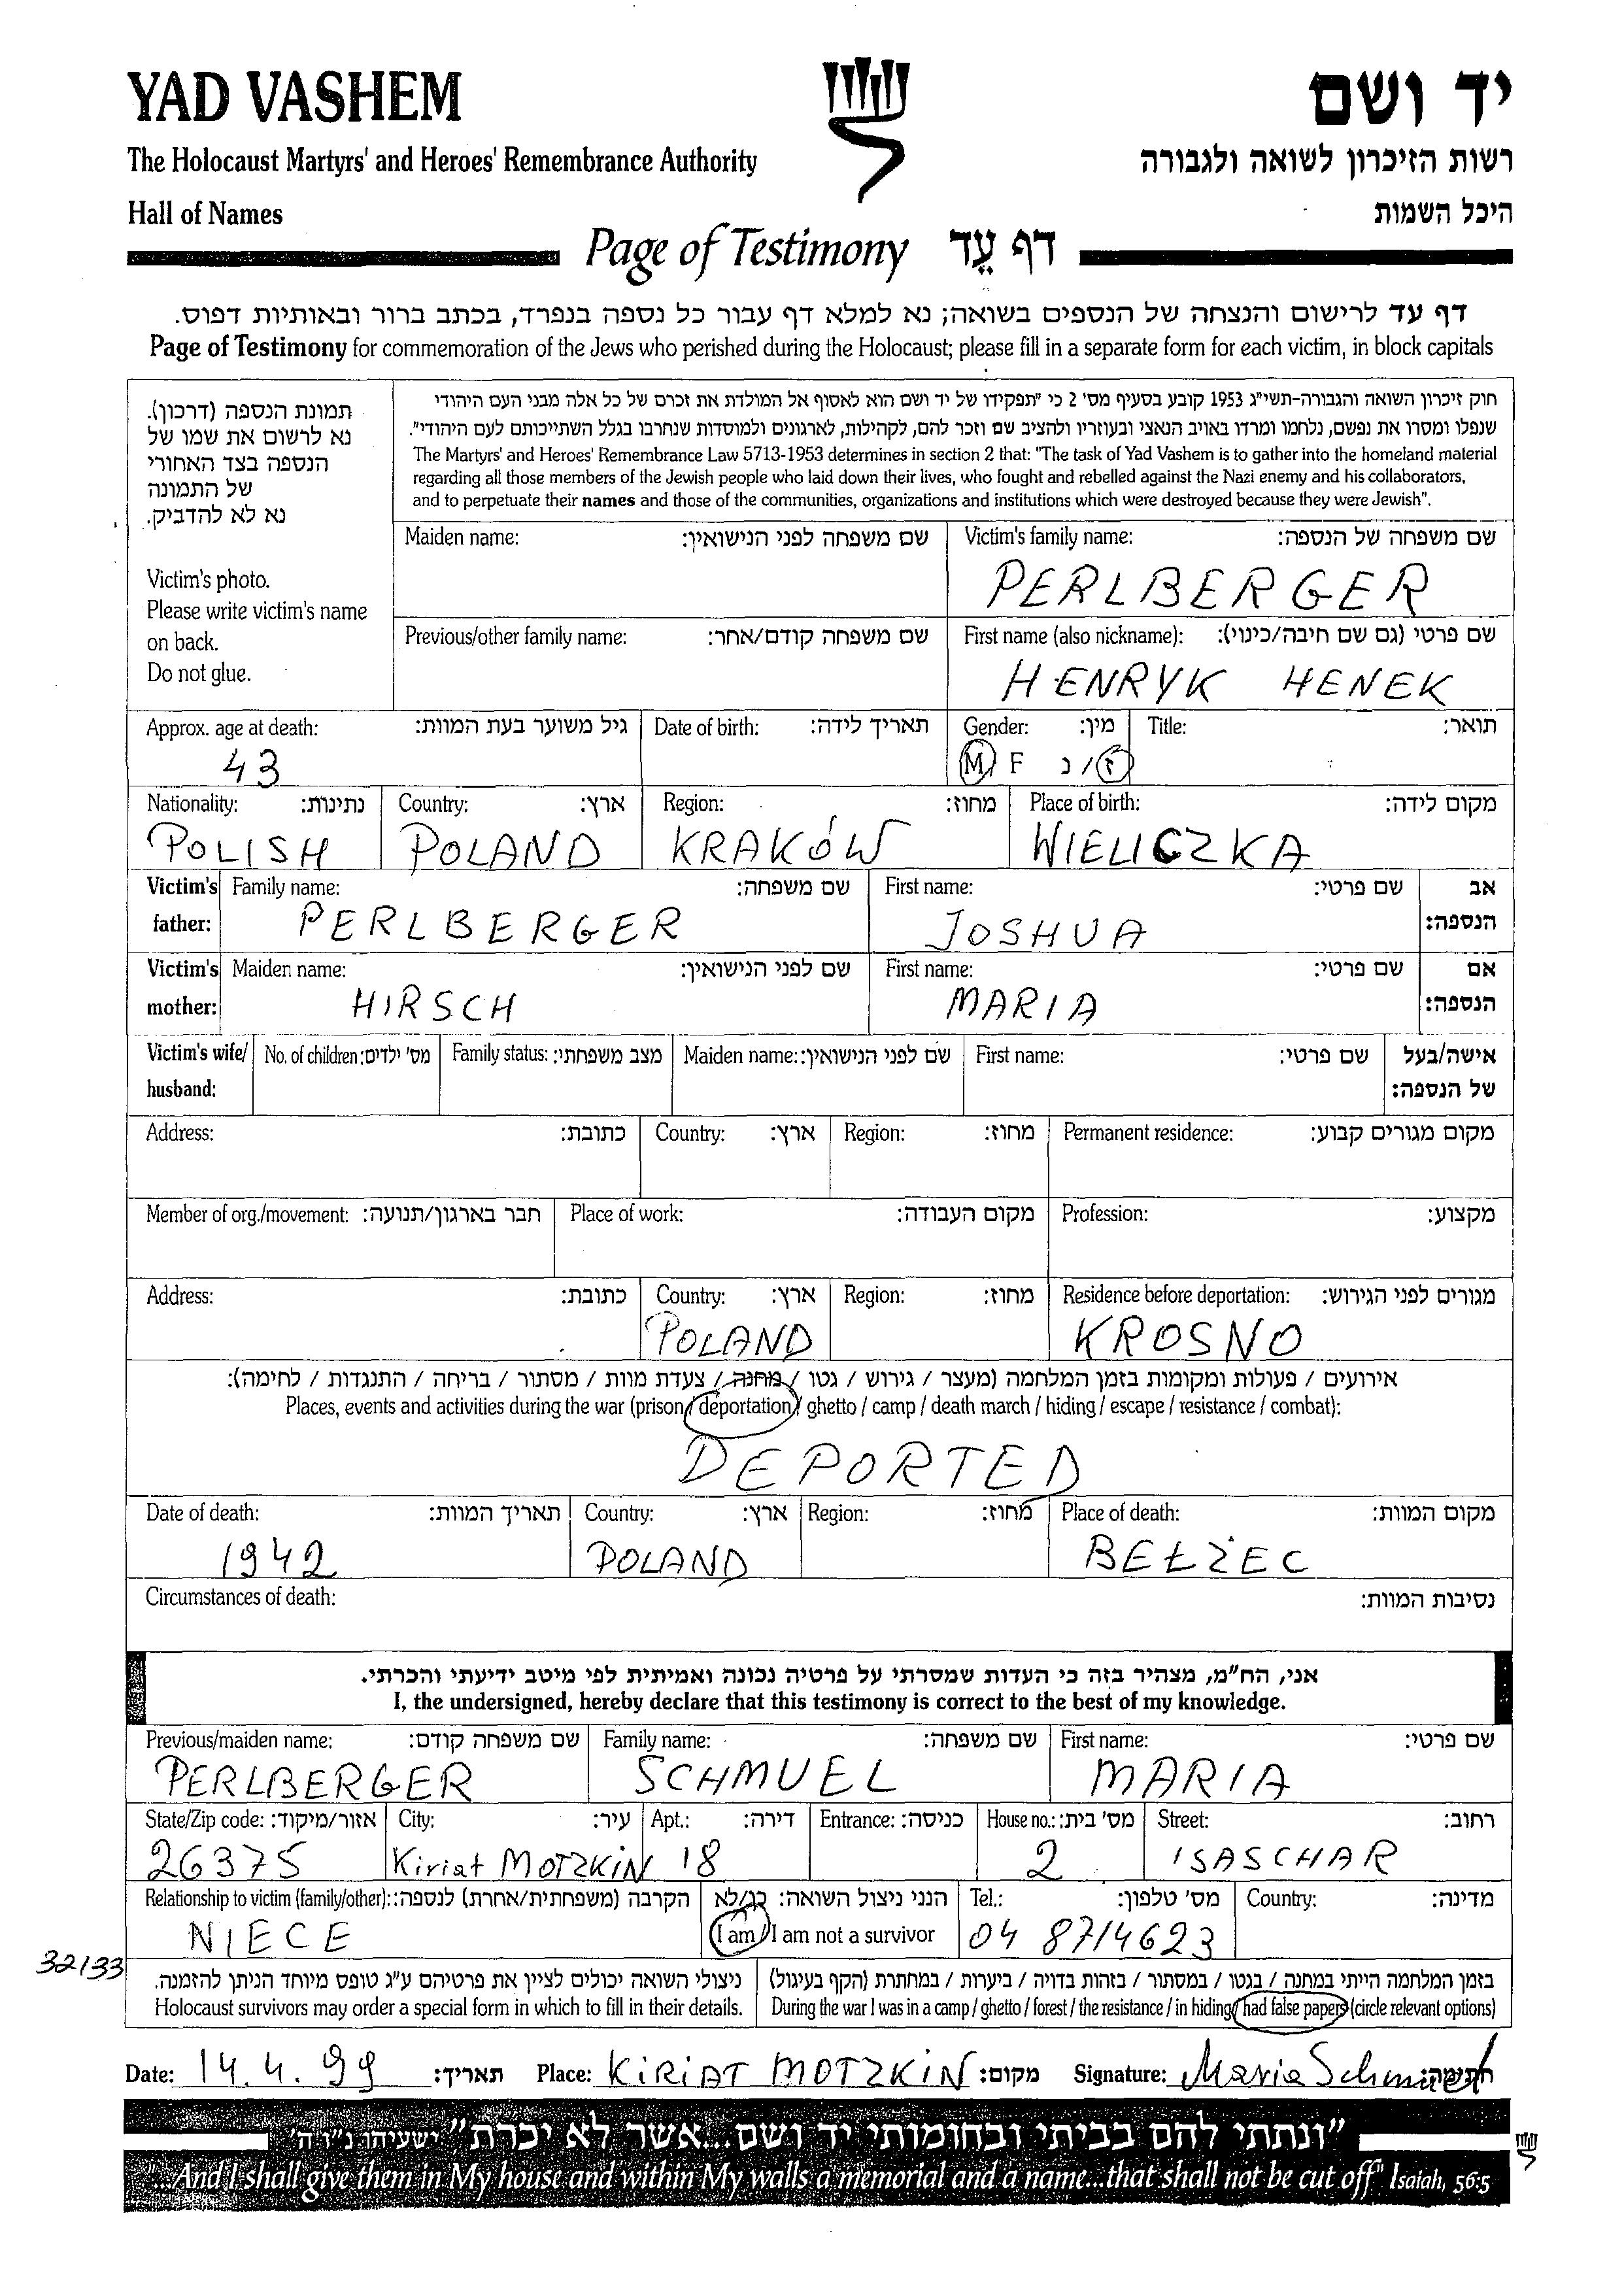 YAD VASHEM
יד ושם
The Holocaust Martyrs' and Heroes' Remembrance Authority
רשות הזיכרון לשואה ולגבורה
Hall of Names
היכל השמות
Page of Testimony דף עֵד
דף עד לרישום והנצחה של הנספים בשואה; נא למלא דף עבור כל נספה בנפרד, בכתב ברור ובאותיות דפוס.
Page of Testimony for commemoration of the Jews who perished during the Holocaust; please fill in a separate form for each victim, in block capitals
תמונת הנספה (דרכון).
נא לרשום את שמו של
הנספה בצד האחורי
של התמונה
נא לא להדביק.
Victim's photo.
Please write victim's name
on back.
Do not glue.
חוק זיכרון השואה והגבורה-תשי"ג 1953 קובע בסעיף מס' 2 כי "תפקידו של יד ושם הוא לאסוף אל המולדת את זכרם של כל אלה מבני העם היהודי
שנפלו ומסרו את נפשם, נלחמו ומרדו באויב הנאצי ובעוזריו ולהציב שם וזכר להם, לקהילות, לארגונים ולמוסדות שנחרבו בגלל השתייכותם לעם היהודי".
The Martyrs' and Heroes' Remembrance Law 5713-1953 determines in section 2 that: "The task of Yad Vashem is to gather into the homeland material
regarding all those members of the Jewish people who laid down their lives, who fought and rebelled against the Nazi enemy and his collaborators,
and to perpetuate their names and those of the communities, organizations and institutions which were destroyed because they were Jewish".
Maiden name: שם משפחה לפני הנישואין: Victim's family name: שם משפחה של הנספה:
PERLBERGER
Previous/other family name: שם משפחה קודם/אחר: First name (also nickname): שם פרטי (גם שם חיבה/כינוי):
HENRYK HENEK
Approx. age at death: גיל משוער בעת המוות: Date of birth: תאריך לידה: Gender: מין: Title: תואר:
43 M/ F ז/ נ
Nationality: נתינות: Country: ארץ: Region: מחוז: Place of birth: מקום לידה:
POLISH POLAND KRAKÓW WIELICZKA
Victim's Family name: שם משפחה: First name: שם פרטי: אב
father: PERLBERGER JOSHUA הנספה:
Victim's Maiden name: שם לפני הנישואין: First name: שם פרטי: אם
mother: HIRSCH MARIA הנספה:
Victim's wife/ No. of children: מס' ילדים: Family status: מצב משפחתי: Maiden name: שם לפני הנישואין: First name: שם פרטי: אישה/בעל
husband: של הנספה:
Address: כתובת: Country: ארץ: Region: מחוז: Permanent residence: מקום מגורים קבוע:
Member of org./movement: חבר בארגון/תנועה: Place of work: מקום העבודה: Profession: מקצוע:
Address: כתובת: Country: ארץ: Region: מחוז: Residence before deportation: מגורים לפני הגירוש:
POLAND KROSNO
אירועים / פעולות ומקומות בזמן המלחמה (מעצר / גירוש / גטו / מחנה / צעדת מוות / מסתור / בריחה / התנגדות / לחימה):
Places, events and activities during the war (prison / deportation / ghetto / camp / death march / hiding / escape / resistance / combat):
DEPORTED
Date of death: תאריך המוות: Country: ארץ: Region: מחוז: Place of death: מקום המוות:
1942 POLAND BEŁŻEC
Circumstances of death: נסיבות המוות:
אני, הח"מ, מצהיר בזה כי העדות שמסרתי על פרטיה נכונה ואמיתית לפי מיטב ידיעתי והכרתי.
I, the undersigned, hereby declare that this testimony is correct to the best of my knowledge.
Previous/maiden name: שם משפחה קודם: Family name: שם משפחה: First name: שם פרטי:
PERLBERGER SCHMUEL MARIA
State/Zip code: אזור/מיקוד: City: עיר: Apt.: דירה: Entrance: כניסה: House no.: מס' בית: Street: רחוב:
26375 Kiriat MOTZKIN 18 2 ISASCHAR
Relationship to victim (family/other): הקרבה (משפחתית/אחרת) לנספה: הנני ניצול השואה: כן/לא Tel.: מס' טלפון: Country: מדינה:
NIECE I am / I am not a survivor 04 8714623
32/33
ניצולי השואה יכולים לציין את פרטיהם ע"ג טופס מיוחד הניתן להזמנה.
Holocaust survivors may order a special form in which to fill in their details.
בזמן המלחמה הייתי במחנה / בגטו / במסתור / בזהות בדויה / ביערות / במחתרת (הקף בעיגול)
During the war I was in a camp / ghetto / forest / the resistance / in hiding / had false papers (circle relevant options)
Date: 14.4.99 תאריך: Place: KIRIAT MOTZKIN מקום: Signature: Maria Schmuel חתימה:
"ונתתי להם בביתי ובחומותי יד ושם...אשר לא יכרת" ישעיהו נ"ו ה'
"...And I shall give them in My house and within My walls a memorial and a name...that shall not be cut off" Isaiah, 56:5